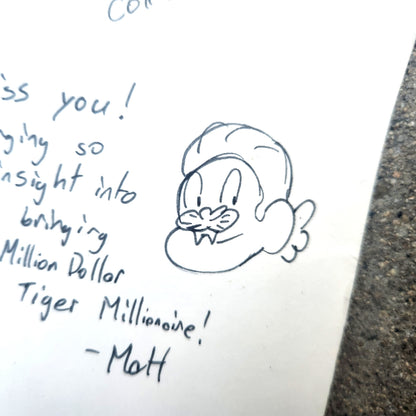 iss you!
nging so
insight into
bringing
Million Dollar
Tiger Millionaire!
- Matt